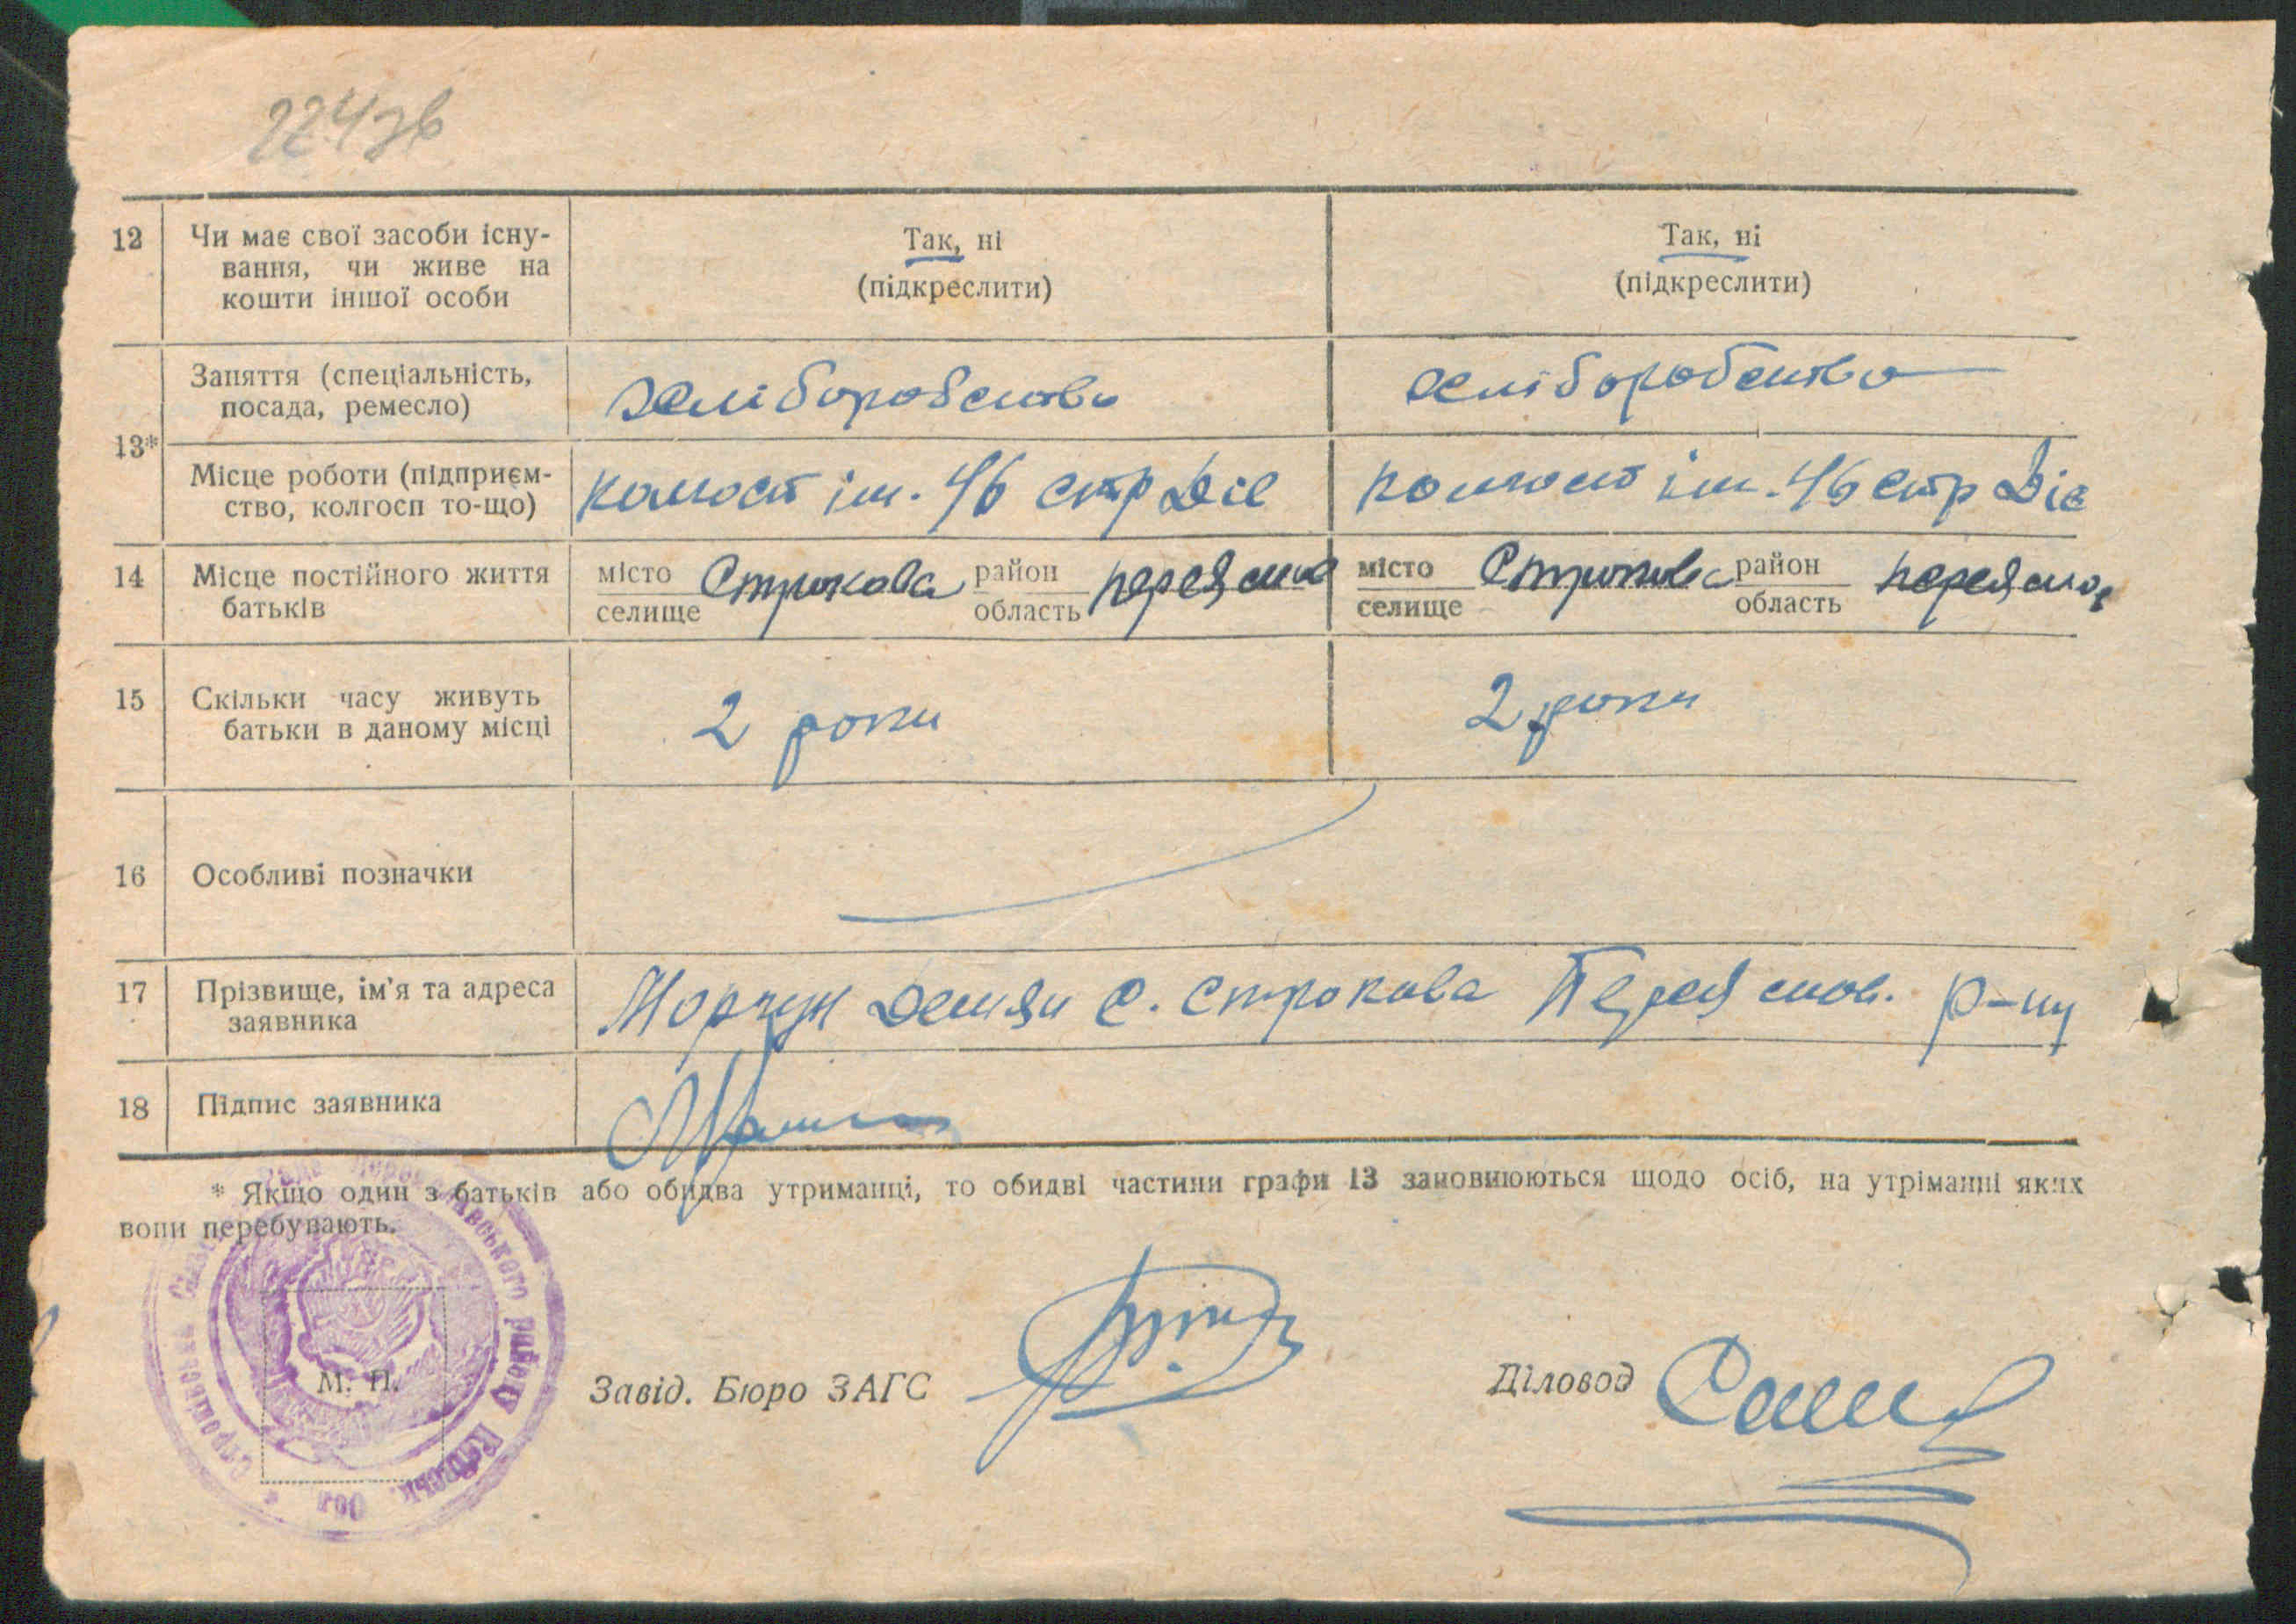 224зв
12 Чи має свої засоби існу-
вання, чи живе на
кошти іншої особи
Так, ні
(підкреслити)
Так, ні
(підкреслити)
13*
Заняття (спеціальність,
посада, ремесло)
хліборобство
хліборобство
Місце роботи (підприєм-
ство, колгосп то-що)
ім. 46 стр Див
ім. 46 стр Див
14 Місце постійного життя
батьків
місто
селище
Строкова
район
область
Переяслав
місто
селище
Строкова
район
область
Переяслав
15 Скільки часу живуть
батьки в даному місці
2 роки
2 роки
16 Особливі позначки
17 Прізвище, ім'я та адреса
заявника
Моргун Демян с. Строкова Переяслов. р-ну
18 Підпис заявника
* Якщо один з батьків або обидва утриманці, то обидві частини графи 13 заповнюються щодо осіб, на утріманні яких
вони перебувають.
М. П.
Завід. Бюро ЗАГС
Діловод